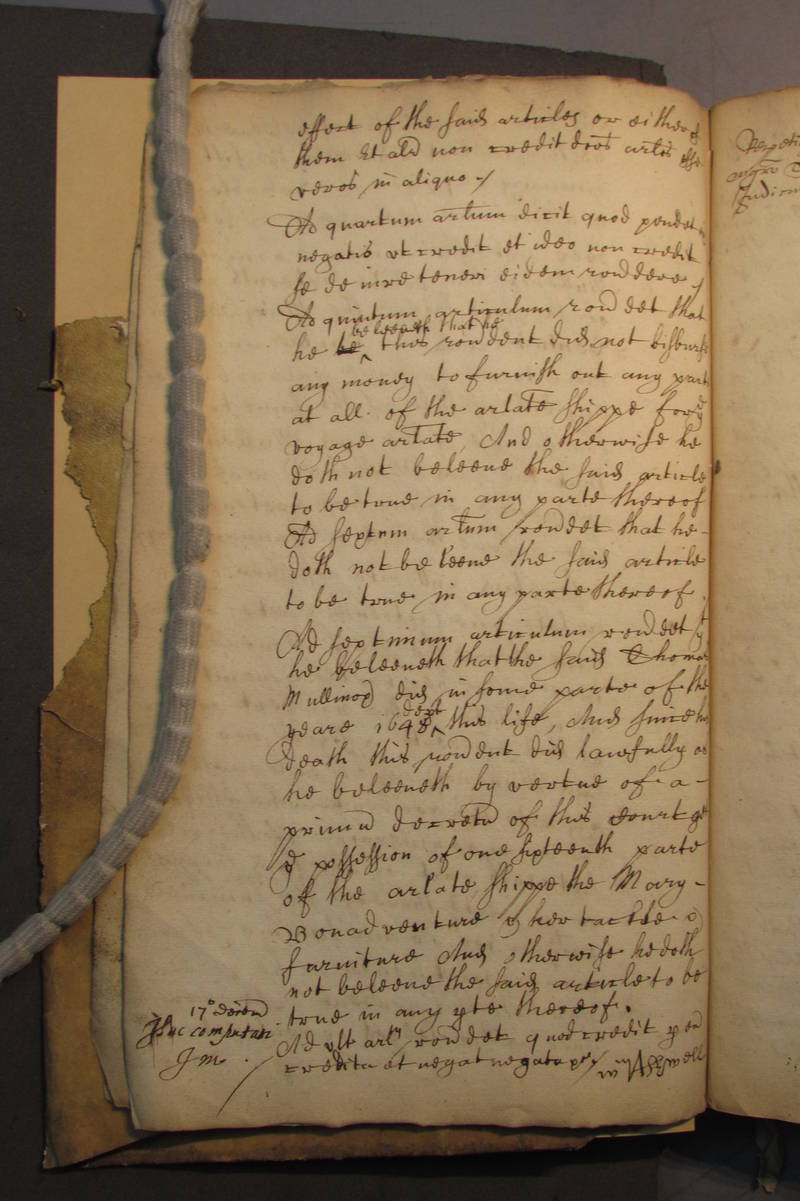 effect of the said articles or either of
them Et al'r non credit d'cos ar'los esse
veros in aliquo ./
Ad quartum ar'lum dicit quod pendet in
negatis ut credit et ideo non credit
se de iure teneri eidem respondere ./
Ad quintum articulum respondet that
he be beleeveth that he this respondent did not disburse
any money to furnish out any part
at all of the arlate shippe for ye
voyage arlate, And otherwise he
doth not beleeve the said article
to be true in any parte thereof
Ad sextum ar'lum respondet that he
doth not beleeve the said article
to be true in any parte thereof.
Ad septimum articulum respondet yt
he beleeveth that the said Thomas
Mullinox did in some parte of the
yeare 1648 dept this life, And since his
death this rondent did lawfully as
he beleeveth by vertue of a
primu decretu of this Court
possession of one sixteenth parte
of the arlate shippe the Mary
Bonadventure & her tackle &
furniture And otherwise he doth
not beleeve the said article to be
true in any pte thereof.
Ad ult ar'lu rondet quod credit p'ed
credita et negat negata
17o
J m